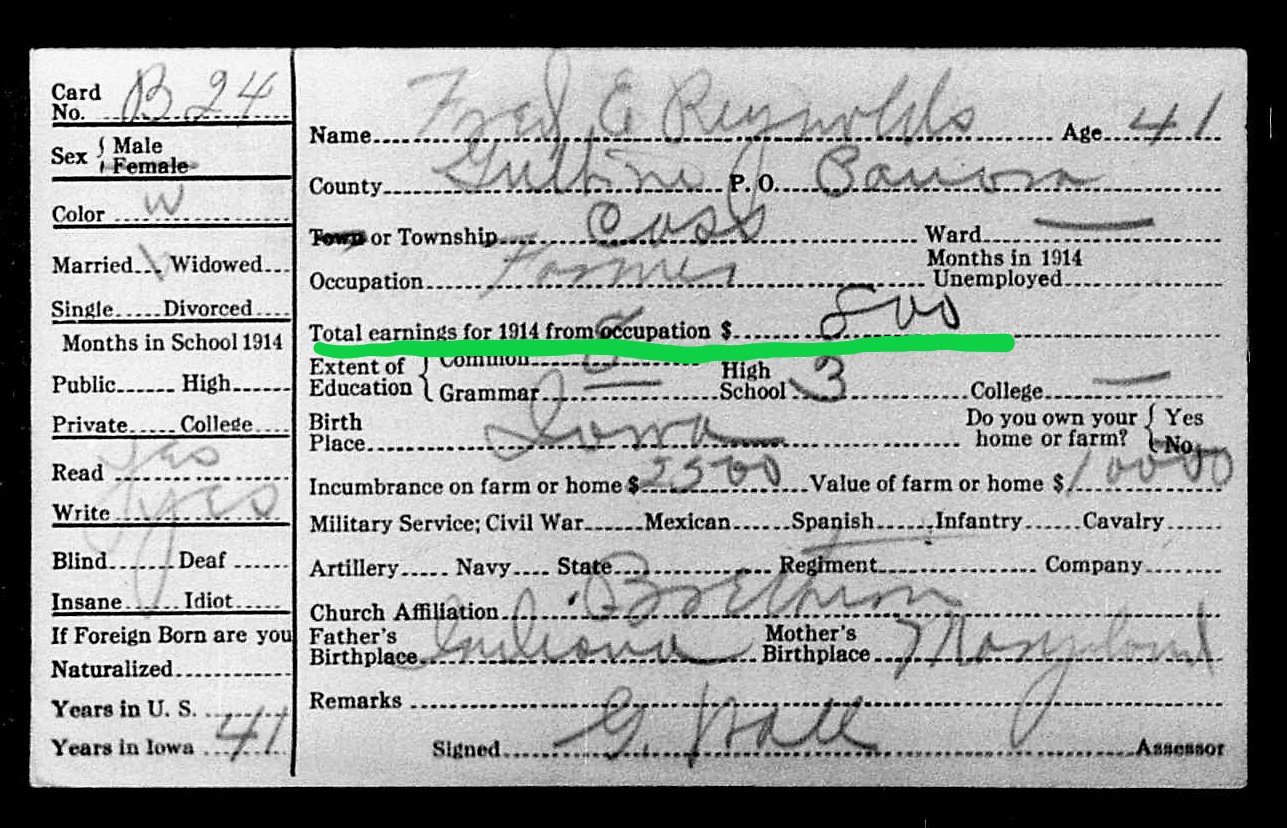 Card No. B 24
Sex { Male
Female
Color W
Married Widowed
Single Divorced
Months in School 1914
Public High
Private College
Read Yes
Write yes
Blind Deaf
Insane Idiot
If Foreign Born are you
Naturalized
Years in U. S.
Years in Iowa 41
Name Fred E Reynolds Age 41
County Guthrie P. O. Panora
Town or Township Cass Ward —
Occupation Farmer Months in 1914 Unemployed
Total earnings for 1914 from occupation $ 800
Extent of Education { Common 8
Grammar — High School 3 College —
Birth Place Iowa Do you own your home or farm? { Yes
No
Incumbrance on farm or home $ 2500 Value of farm or home $ 10000
Military Service; Civil War Mexican Spanish Infantry Cavalry
Artillery Navy State Regiment Company
Church Affiliation
Father's Birthplace Indiana Mother's Birthplace Maryland
Remarks
Signed G. Hall Assessor